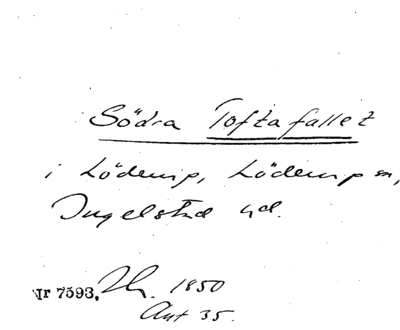 Södra Toftafallet
i Löderup, Löderup sn,
Ingelstad hd.
Nr 7593. 1850
Ant 35.